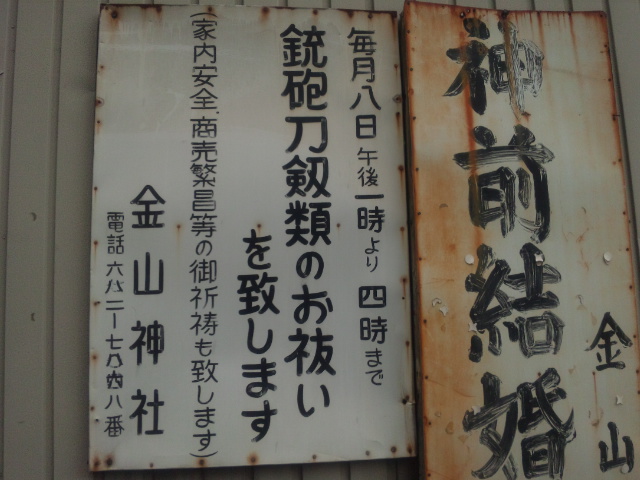 金山
神前結婚
毎月八日 午後一時より 四時まで
銃砲刀剱類のお祓い
を致します
(家内安全、商売繁昌等の御祈祷も致します)
金山神社
電話 六八二ー七八六八番